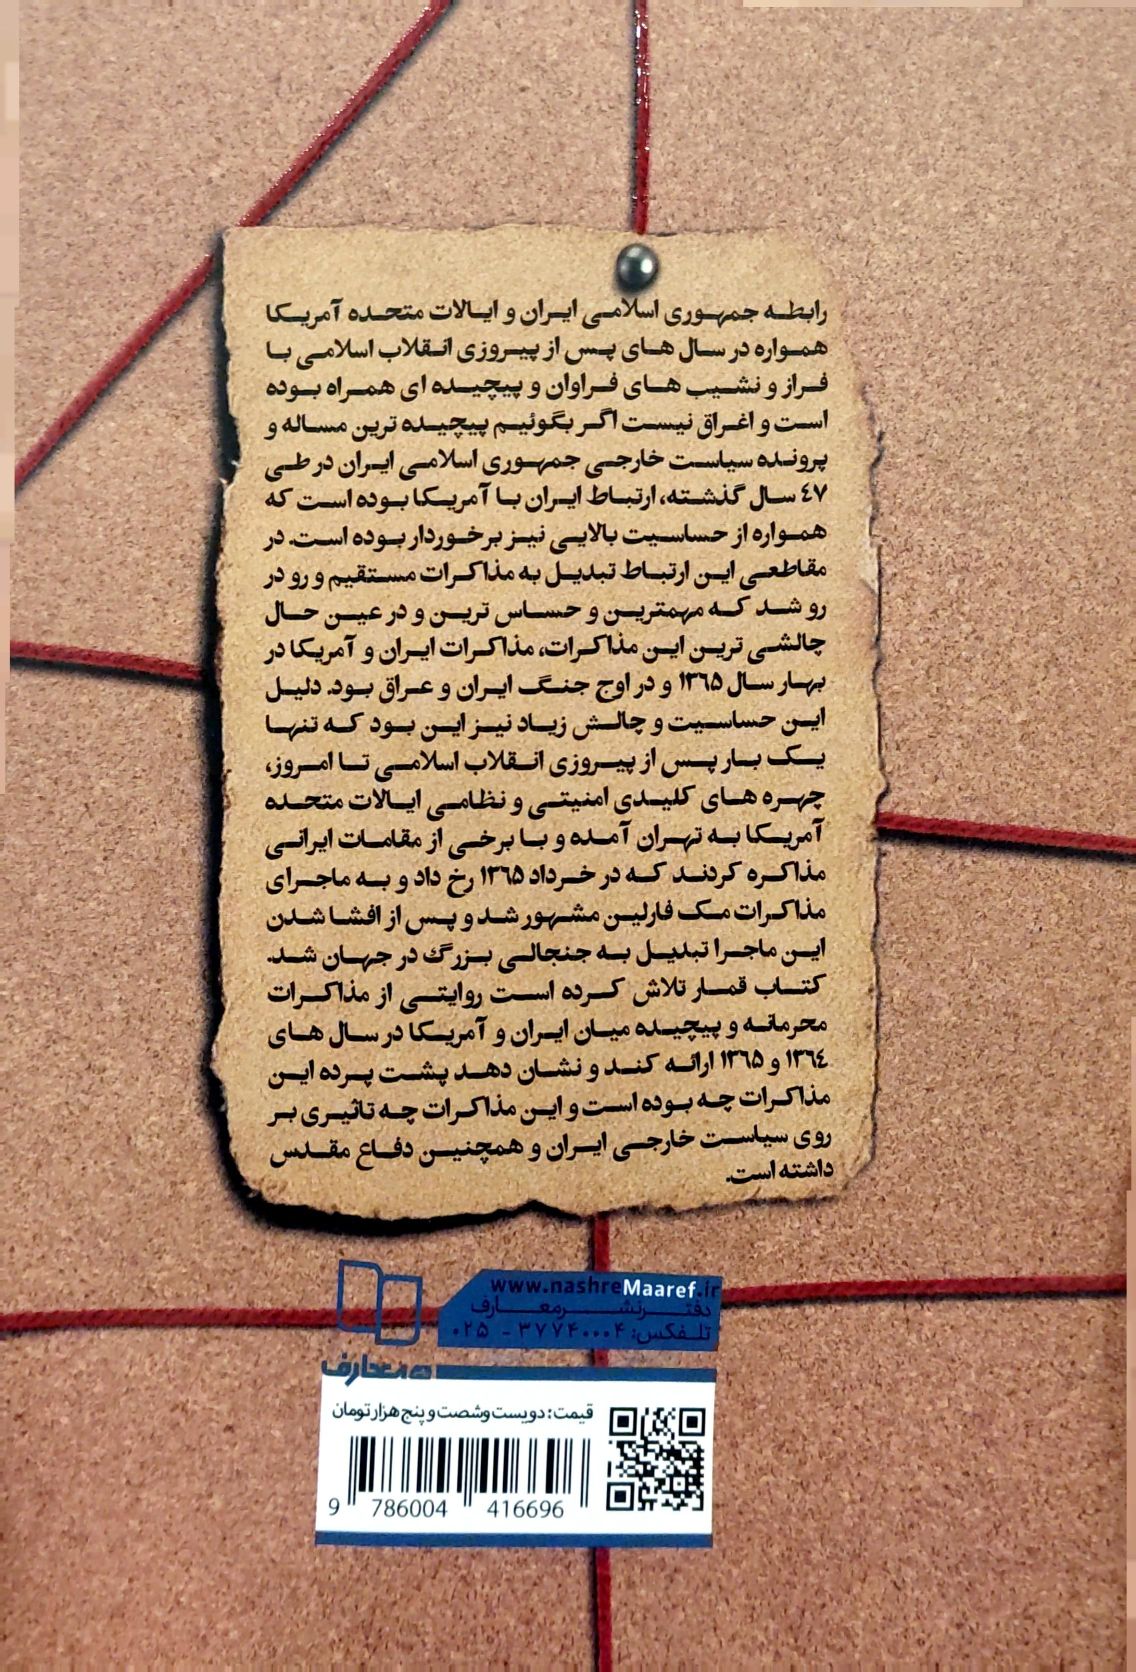 رابطه جمهوری اسلامی ایران و ایالات متحده آمریکا
همواره در سال های پس از پیروزی انقلاب اسلامی با
فراز و نشیب های فراوان و پیچیده ای همراه بوده
است و اغراق نیست اگر بگوئیم پیچیده ترین مساله و
پرونده سیاست خارجی جمهوری اسلامی ایران در طی
٤٧ سال گذشته، ارتباط ایران با آمریکا بوده است که
همواره از حساسیت بالایی نیز برخوردار بوده است. در
مقاطعی این ارتباط تبدیل به مذاکرات مستقیم و رو در
رو شد که مهمترین و حساس ترین و در عین حال
چالشی ترین این مذاکرات، مذاکرات ایران و آمریکا در
بهار سال ١٣٦٥ و در اوج جنگ ایران و عراق بود. دلیل
این حساسیت و چالش زیاد نیز این بود که تنها
یک بار پس از پیروزی انقلاب اسلامی تا امروز،
چهره های کلیدی امنیتی و نظامی ایالات متحده
آمریکا به تهران آمده و با برخی از مقامات ایرانی
مذاکره کردند که در خرداد ١٣٦٥ رخ داد و به ماجرای
مذاکرات مک فارلین مشهور شد و پس از افشا شدن
این ماجرا تبدیل به جنجالی بزرگ در جهان شد.
کتاب قمار تلاش کرده است روایتی از مذاکرات
محرمانه و پیچیده میان ایران و آمریکا در سال های
١٣٦٤ و ١٣٦٥ ارائه کند و نشان دهد پشت پرده این
مذاکرات چه بوده است و این مذاکرات چه تاثیری بر
روی سیاست خارجی ایران و همچنین دفاع مقدس
داشته است.
www.nashreMaaref.ir
دفتر نشر معارف
تلفکس: ۳۷۷۴۰۰۰۴ - ۰۲۵
معارف
قیمت: دویست و شصت و پنج هزار تومان
9 786004 416696